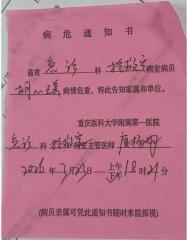 病危通知书
兹有 急诊 科 抢救室 病室病员
胡 病情危重，特此告知家属和单位。
重庆医科大学附属第一医院
急诊 科 抢救室 病室主管医师
3月23日 上午 下午 18时21分
(病员亲属可凭此通知书随时来院探视)